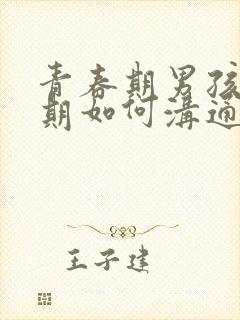 青春期男孩
期如何溝通
王子建